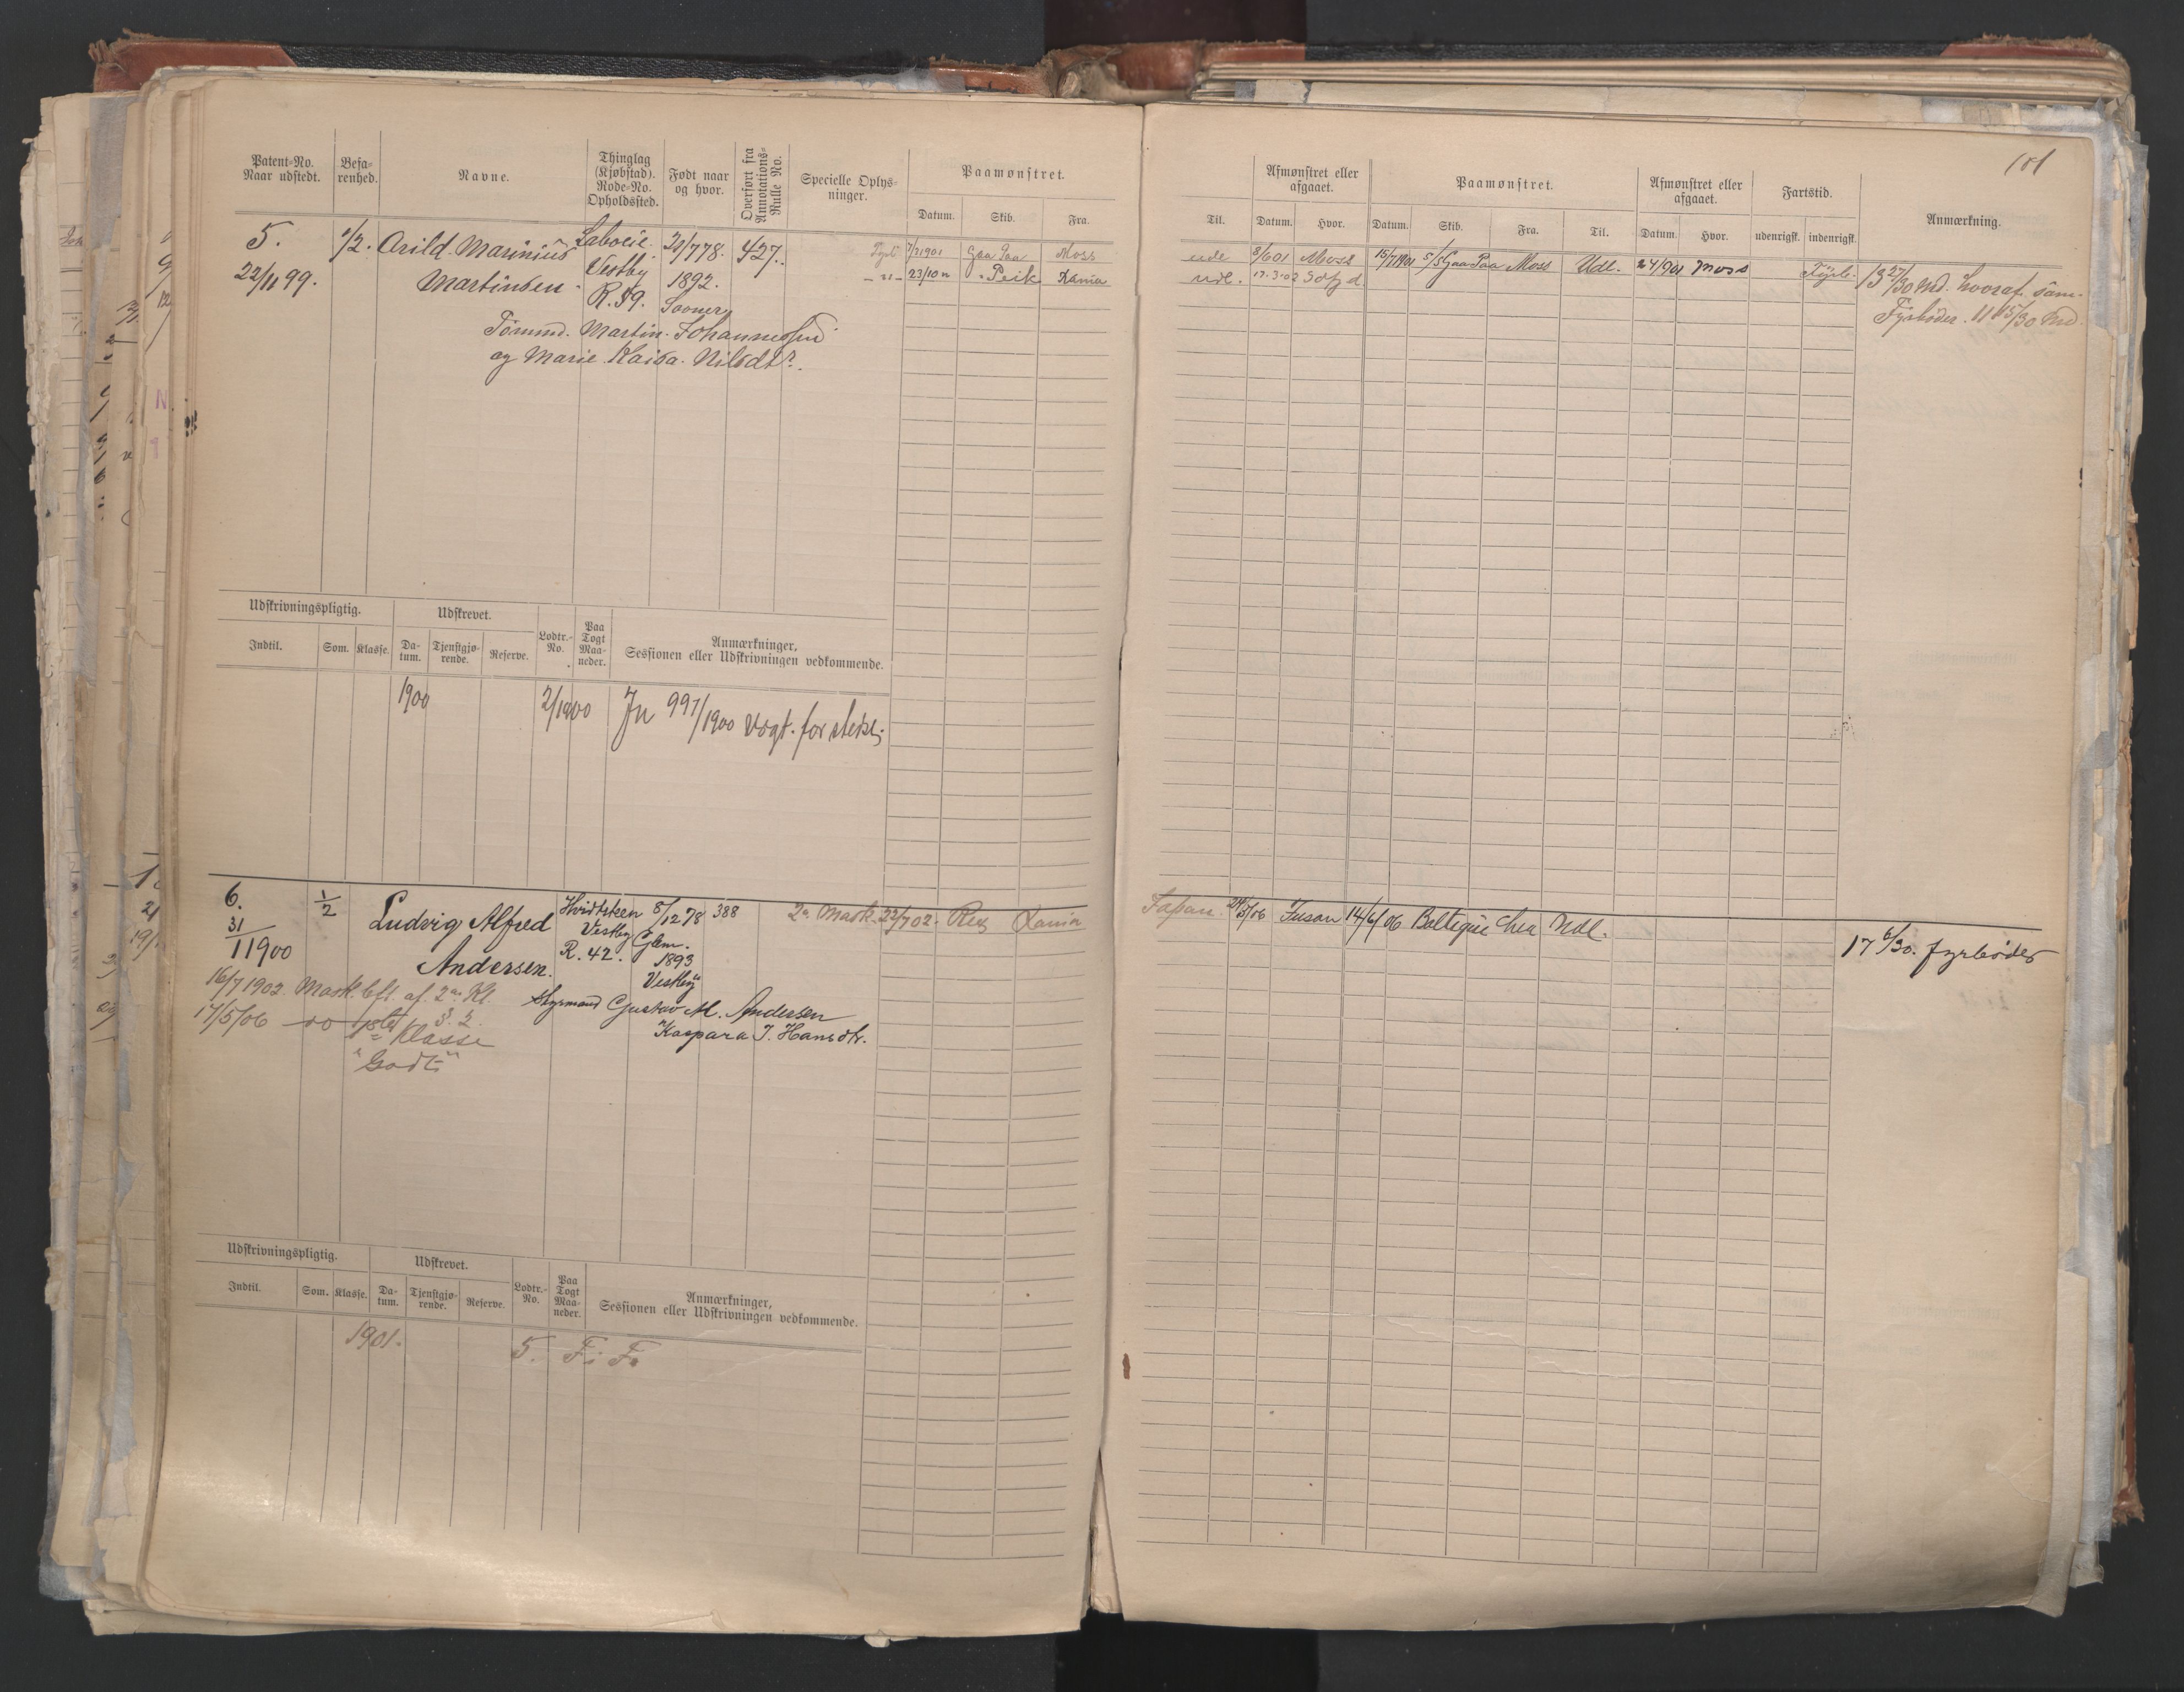 101
Patent-No. Naar udstedt. Befa-renhed. Navne. Thinglag (Kjøbstad). Rode-No. Opholdssted. Født naar og hvor. Overført fra Annotations-Rulle No. Specielle Oplys-ninger. Paamønstret. Datum. Skib. Fra.
Til. Afmønstret eller afgaaet. Datum. Hvor. Paamønstret. Datum. Skib. Fra. Til. Afmønstret eller afgaaet. Datum. Hvor. Fartstid. udenrigsk. indenrigsk. Anmærkning.
5. 1/2. Arild Marinius Laboeie. 20/778. 427.
22/11 99. Martinsen. Vestby 1892.
R. 59. Sooner
Tømmd. Martin Johannessen
og Marie Kaisa Nilsdtr.
Fyrb. 7/2 1901 Gaa Paa Moss
23/10 " Peik Kania
ude 8/6 01 Moss 15/7 1901 S/S Gaa Paa Moss Udl. 24/9 01 Moss Fyrb.
udl. 17.3.02
13 27/30 Md. hvoraf som
Fyrbøder. 11 15/30 Md
Udskrivningspligtig. Udskrevet. Lodtr.-No. Paa Togt Maa-neder. Anmærkninger, Sessionen eller Udskrivningen vedkommende.
Indtil. Som. Klasse. Da-tum. Tjenstgjø-rende. Reserve.
1900 2/1900 Jn 997/1900 Vogt. for
6. 1/2 Ludvig Alfred Hvidtsteen 8/12 78 388 2a Mask. 22/7 02. Rex Kania
31/1 1900 Andersen. Vestby Glem.
R. 42. 1893
Vestby
16/7 1902. Mask. bft. af 2en Kl. § 2.
Styrmand Gustav M. Andersen
Kaspara J. Hansdtr.
17/5/06 do 1ste Klasse
"Godt"
Japan. Fusan 14/6/06 Baltique Chra Udl.
17 6/30. fyrbøder
Udskrivningspligtig. Udskrevet. Lodtr.-No. Paa Togt Maa-neder. Anmærkninger, Sessionen eller Udskrivningen vedkommende.
Indtil. Som. Klasse. Da-tum. Tjenstgjø-rende. Reserve.
1901. 5. Fi Fa